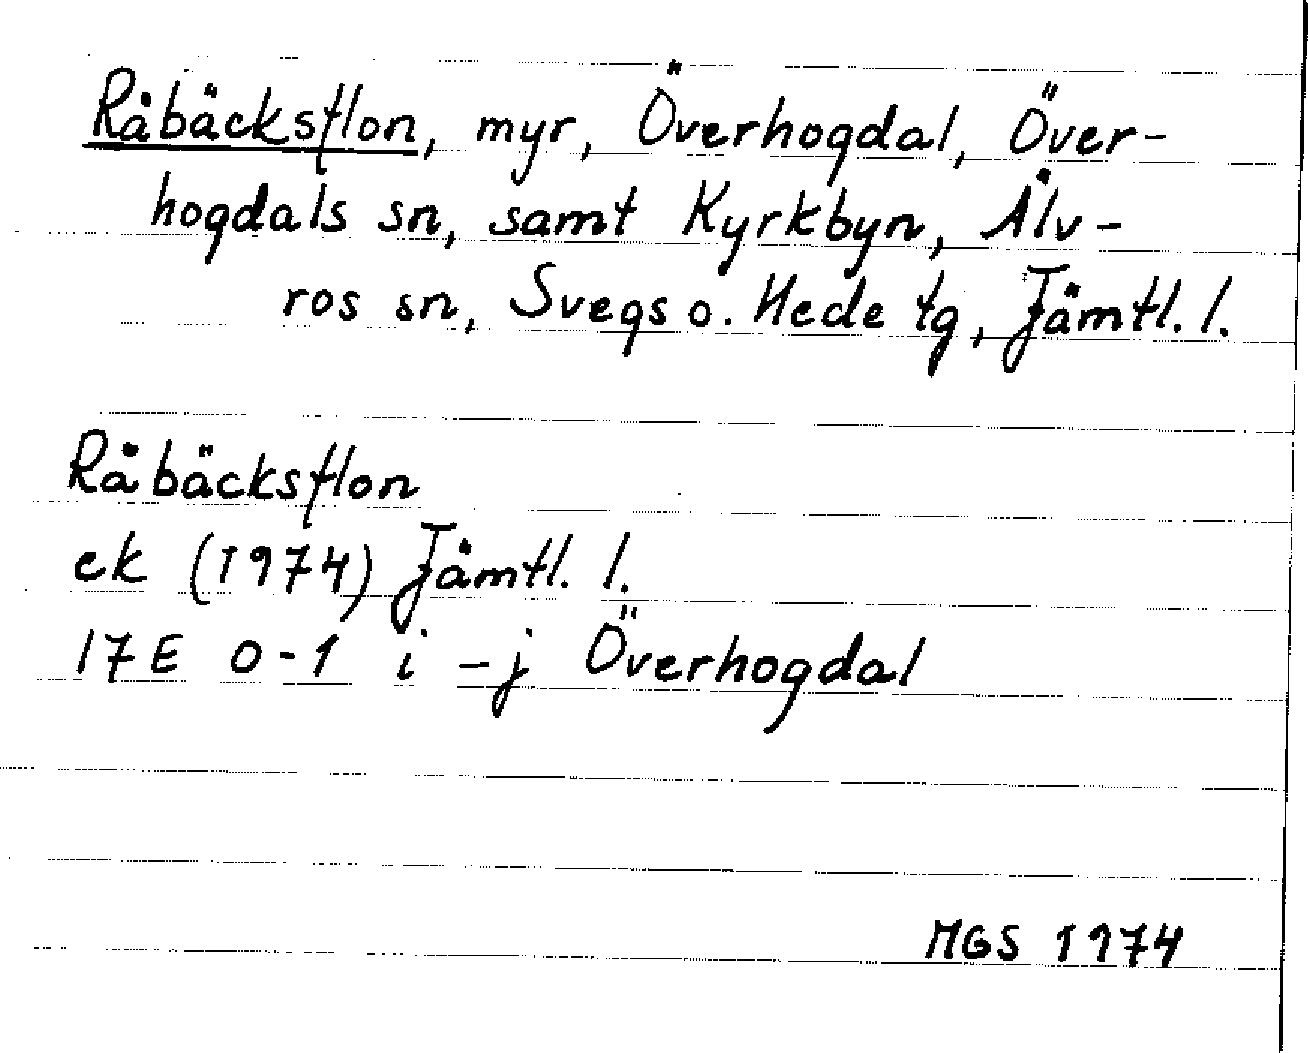 Råbäcksflon, myr, Överhogdal, Över-
hogdals sn, samt Kyrkbyn, Älv-
ros sn, Svegs o. Hede tg, Jämtl. l.
Råbäcksflon
ek (1974) Jämtl. l.
17E 0-1 i - j Överhogdal
MGS 1974